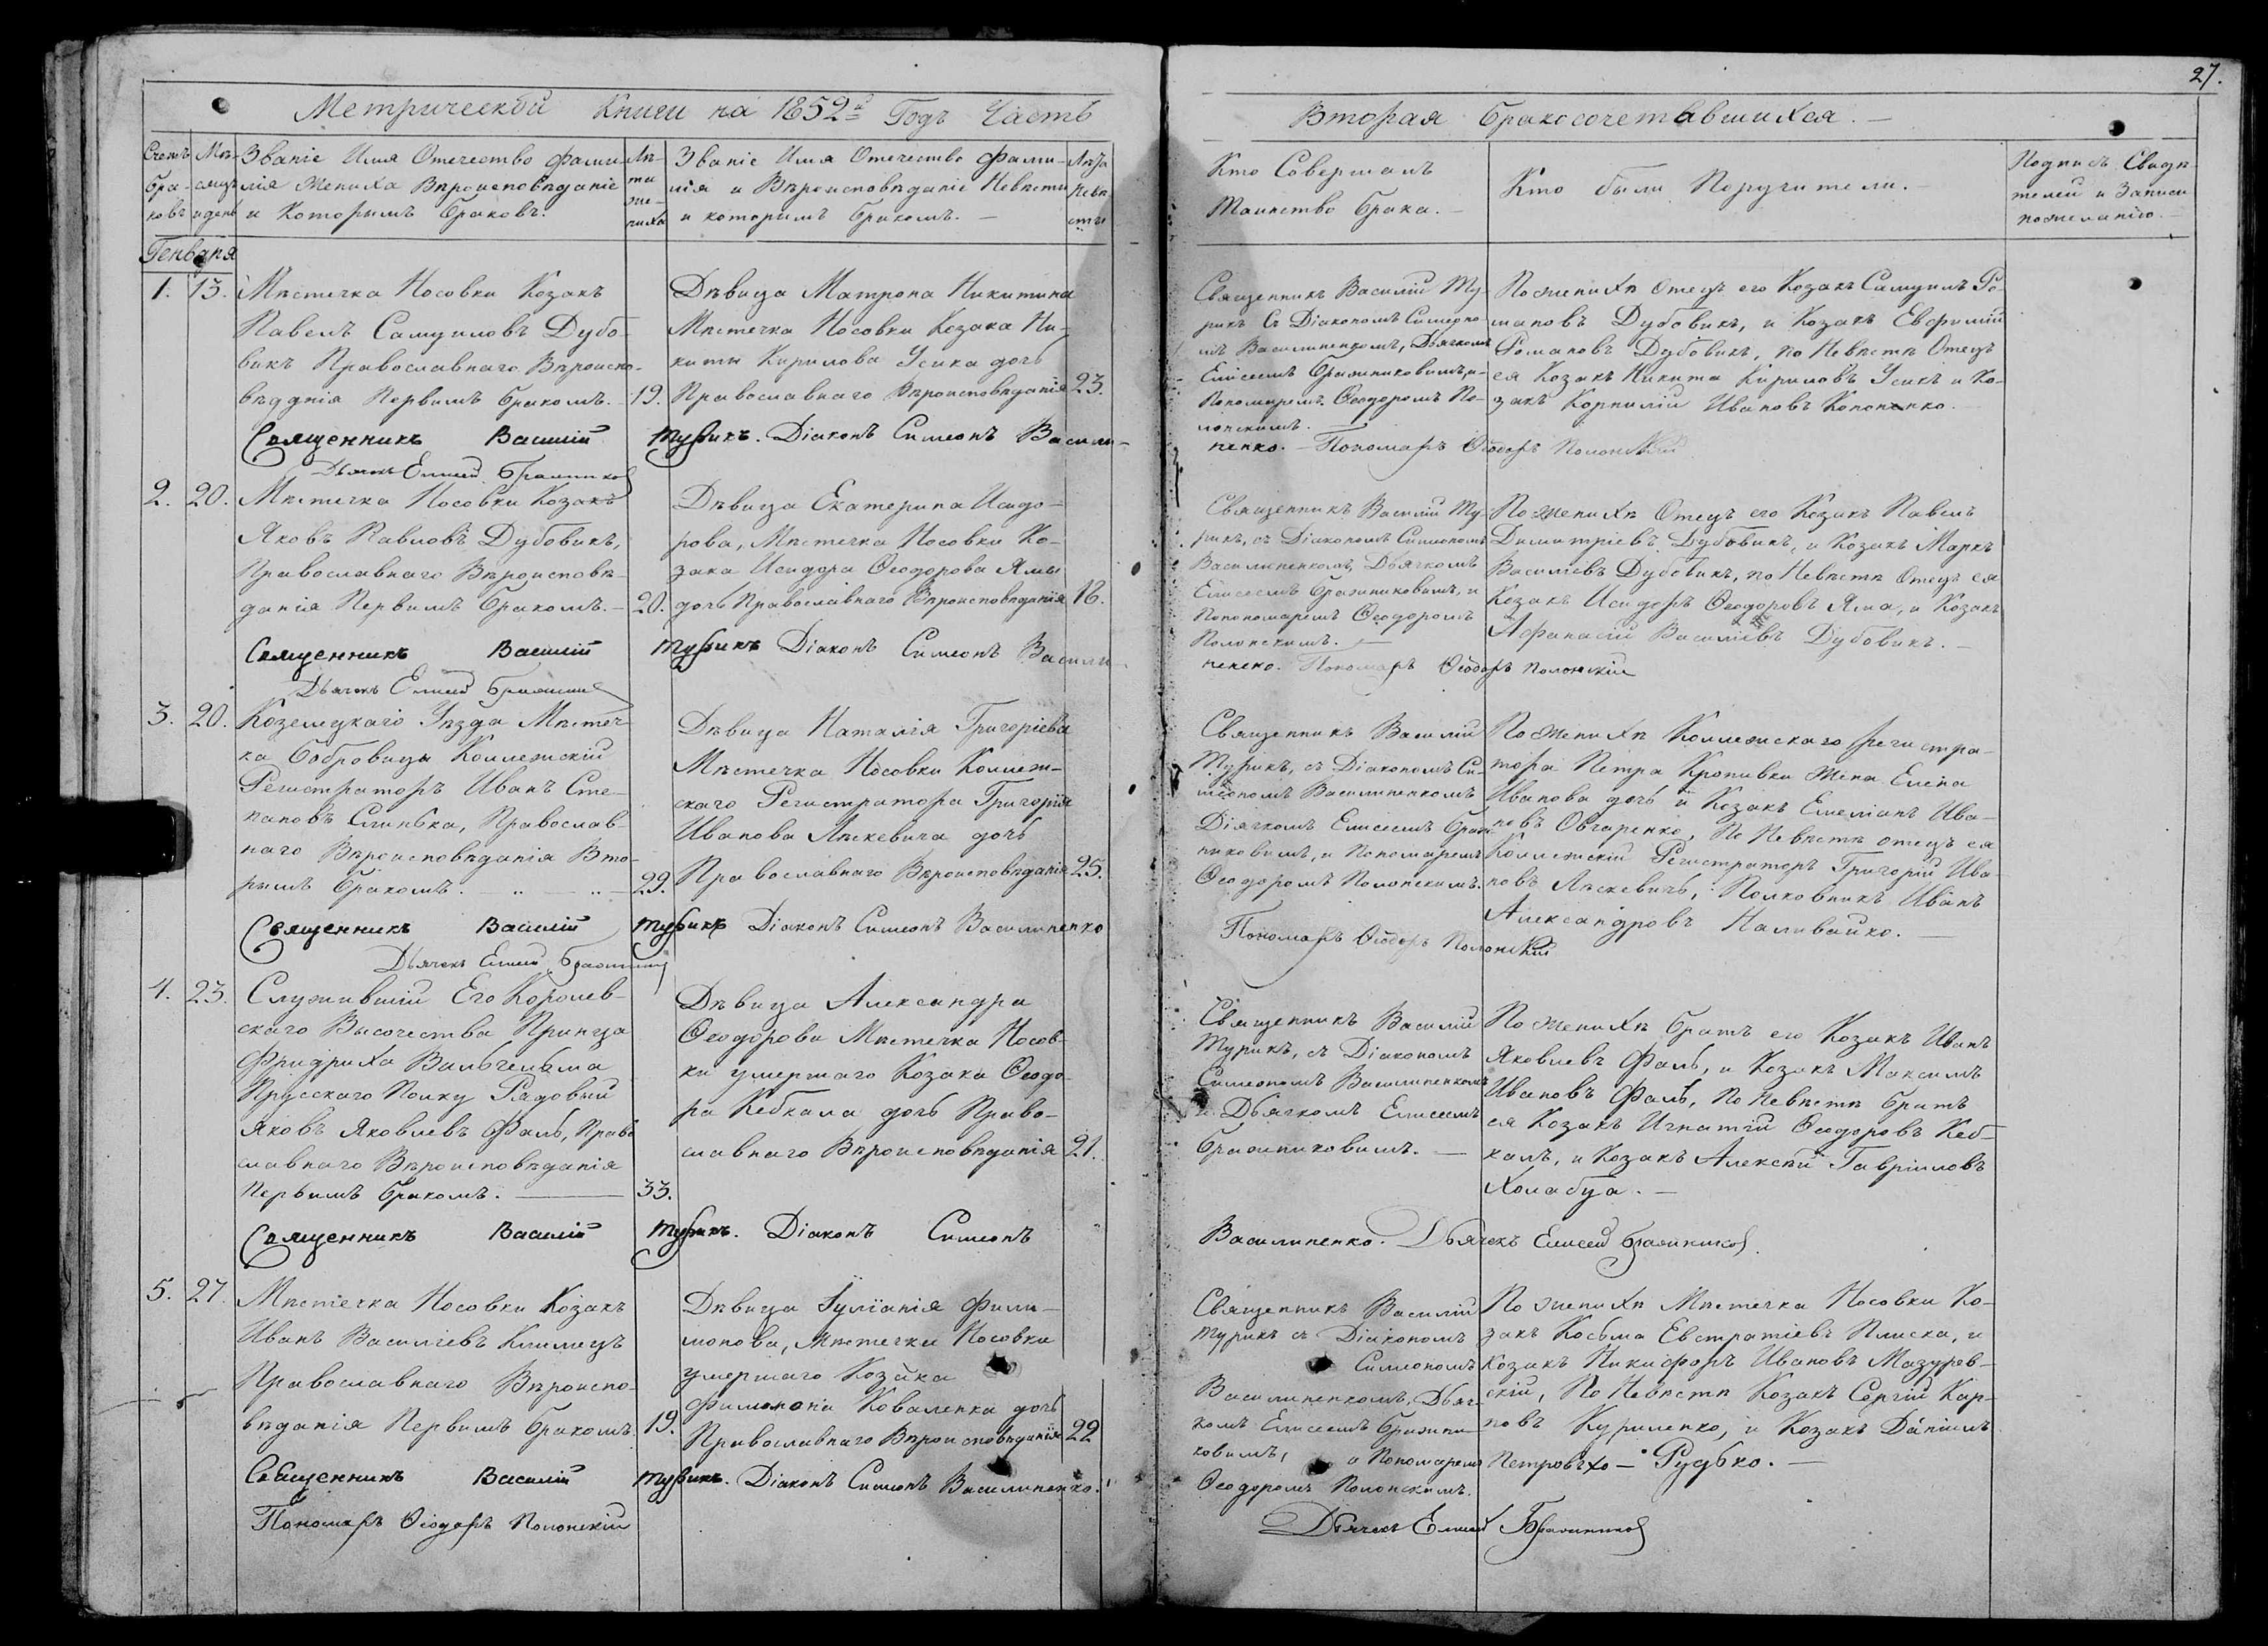 27.
Метрической Книги на 1852й Годъ Часть
Вторая бракосочетавшихся.
Счетъ браковъ
Мѣсяцъ и день
Званіе Имя Отечество фамилія жениха Вѣроисповѣданіе и Которымъ браковъ.
Лѣта жениха
Званіе Имя Отечество фамилія и Вѣроисповѣданіе Невѣсты и которымъ бракомъ. —
Лѣта Невѣсты
Кто Совершалъ
Таинство брака. —
Кто были Поручители. —
Подпись Свидѣ-
телей и Записи
по желанію. —
Генваря
1. 13.
Мѣстечка Носовки Козакъ
Павелъ Самуиловъ Дубо-
викъ Православнаго Вѣроиспо-
вѣданія Первымъ бракомъ. — 19.
Дѣвица Матрона Никитина
Мѣстечка Носовки Козака Ни-
киты Кирилова Усика дочь
Православнаго Вѣроисповѣданія 23.
Священникъ Василій Ту-
рикъ Съ Діакономъ Симеоно-
мъ Василиненкомъ, Дьячкомъ
Елисеемъ Бражниковимъ, и
Пономаремъ Ѳеодоромъ По-
лонскимъ. —
По женихѣ Отецъ его Козакъ Самуилъ Ро-
мановъ Дубовикъ, и Козакъ Евфимій
Романовъ Дубовикъ, по Невѣстѣ Отецъ
ея Козакъ Никита Кириловъ Усикъ и Ко-
закъ Корнилій Ивановъ Кононенко.
Священникъ Василій Турикъ. Діаконъ Симеонъ Васили-
ненко. — Пономарь Ѳеодоръ Полонскій
Дьячекъ Елисей Бражниковъ
2. 20.
Мѣстечка Носовки Козакъ
Яковъ Павловъ Дубовикъ,
Православнаго Вѣроисповѣ-
данія Первымъ бракомъ. — 20.
Дѣвица Екатерина Исидо-
рова, Мѣстечка Носовки Ко-
зака Исидора Ѳеодорова Ямы
дочь Православнаго Вѣроисповѣданія 18.
Священникъ Василій Ту-
рикъ, съ Діакономъ Симеономъ
Василиненкомъ, Дьячкомъ
Елисеемъ Бражниковимъ, и
Понономаремъ Ѳеодоромъ
Полонскимъ. —
По женихѣ Отецъ его Козакъ Павелъ
Димитріевъ Дубовикъ, и Козакъ Маркъ
Василіевъ Дубовикъ, по Невѣстѣ Отецъ ея
Козакъ Исидоръ Ѳеодоровъ Яма, и Козакъ
Афанасій Василіевъ Дубовикъ. —
Священникъ Василій Турикъ Діаконъ Симеонъ Васили-
ненко. Пономарь Ѳеодоръ Полонскій
Дьячекъ Елисей Бражниковъ
3. 20.
Козелецкаго Уѣзда Мѣстеч-
ка Бобровицы Коллежскій
Регистраторъ Иванъ Сте-
пановъ Слинька, Православ-
наго Вѣроисповѣданія Вто-
рымъ бракомъ. — „ — „ — 29.
Дѣвица Наталія Григоріева
Мѣстечка Носовки Коллеж-
скаго Регистратора Григорія
Иванова Ляскевича дочь
Православнаго Вѣроисповѣданія 25.
Священникъ Василій
Турикъ, съ Діакономъ Си-
меономъ Василиненкомъ
Діячкомъ Елисеемъ Браж-
никовимъ, и Пономаремъ
Ѳеодоромъ Полонскимъ.
По женихѣ Коллежскаго регистра-
тора Петра Кропивки жена Елена
Иванова дочь и Козакъ Емеліанъ Ива-
новъ Овчаренко, По Невѣстѣ отецъ ея
Коллежскій Регистраторъ Григорій Ива-
новъ Ляскевичъ, Полковникъ Иванъ
Александровъ Наливайко. —
Священникъ Василій Турикъ Діаконъ Симеонъ Василиненко
Пономарь Ѳеодоръ Полонскій
Дьячекъ Елисей Бражниковъ
4. 23.
Служившій Его Королев-
скаго Высочества Принца
Фридриха Вальгельма
Прусскаго Полку Рядовый
Яковъ Яковлевъ Фаль, Право-
славнаго Вѣроисповѣданія
Первымъ бракомъ. — 33.
Дѣвица Александра
Ѳеодорова Мѣстечка Носов-
ки умершаго Козака Ѳеодо-
ра Кебкала дочь Право-
славнаго Вѣроисповѣданія 21.
Священникъ Василій
Турикъ, съ Діакономъ
Симеономъ Василиненкомъ
и Дьячкомъ Елисеемъ
Бражниковимъ. —
По женихѣ братъ его Козакъ Иванъ
Яковлевъ Фаль, и Козакъ Максимъ
Ивановъ Фаль, По Невѣстѣ братъ
ея Козакъ Игнатій Ѳеодоровъ Кеб-
калъ, и Козакъ Алексѣй Гавріиловъ
Холабуа. —
Священникъ Василій Турикъ. Діаконъ Симеонъ
Василиненко. Дьячекъ Елисей Бражниковъ.
5. 27.
Мѣстечка Носовки Козакъ
Иванъ Василіевъ Климецъ
Православнаго Вѣроиспо-
вѣданія Первымъ бракомъ. 19.
Дѣвица Іуліанія Фили-
монова, Мѣстечка Носовки
умершаго Козака
Филимона Коваленка дочь
Православнаго Вѣроисповѣданія 22
Священникъ Василій
Турикъ съ Діакономъ
Симеономъ
Василиненкомъ, Дьяч-
комъ Елисеемъ Бражни-
ковимъ, и Пономаремъ
Ѳеодоромъ Полонскимъ.
По женихѣ Мѣстечка Носовки Ко-
закъ Косьма Евстратіевъ Плиска, и
Козакъ Никифоръ Ивановъ Мазурев-
скій, По Невѣстѣ Козакъ Сергій Кар-
повъ Куриленко, и Козакъ Даніилъ
Петровъ — Рудько. —
Священникъ Василій Турикъ. Діаконъ Симеонъ Василиненко.
Пономарь Ѳеодоръ Полонскій
Дьячекъ Елисей Бражниковъ